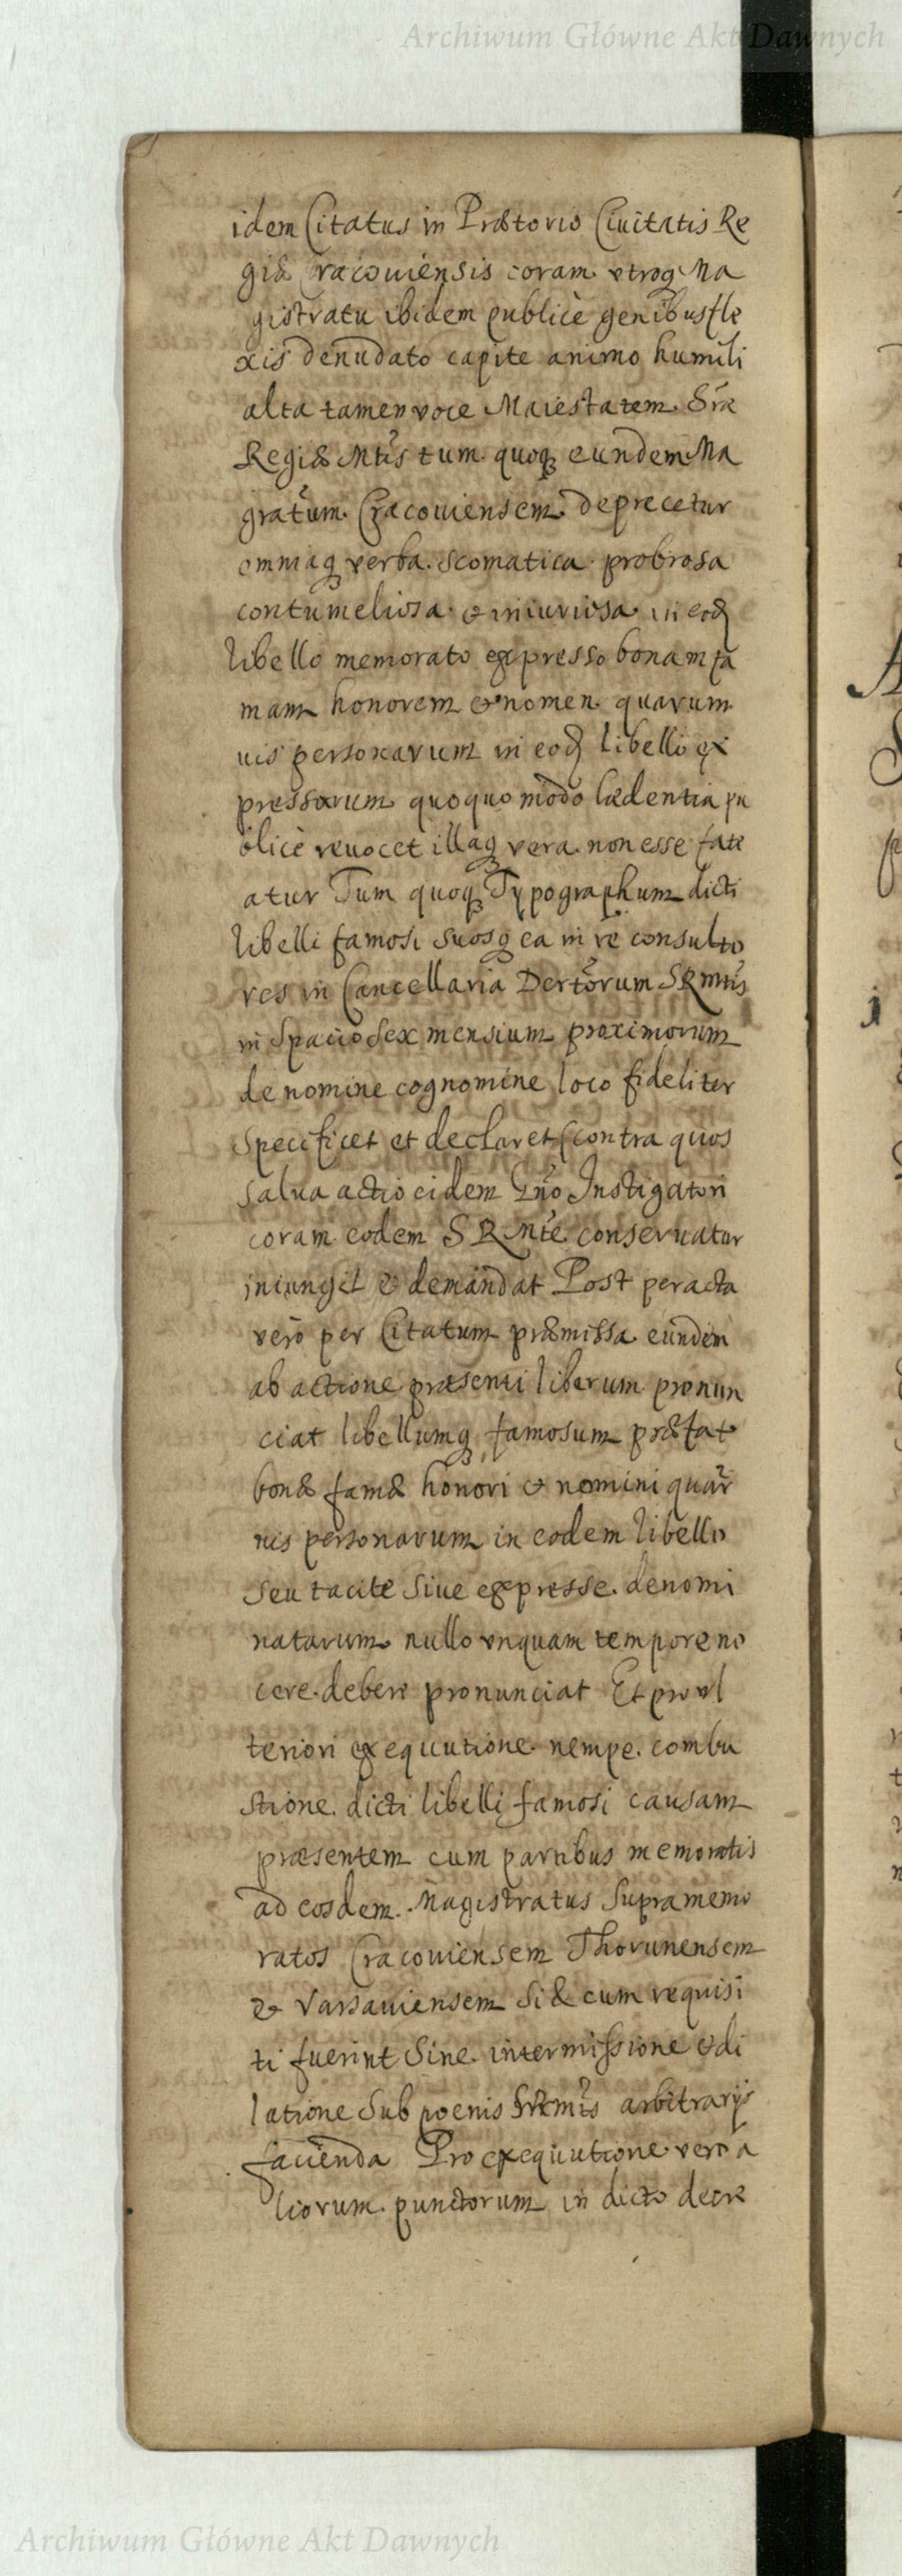 Archiwum Główne Akt Dawnych
idem Citatus in Prætorio Ciuitatis Re
giæ Cracouiensis coram vtroq Ma
gistratu ibidem publicè genibus fle
xis denudato capite animo humili
alta tamen voce Maiestatem Sræ
Regiæ Mtis tum quoq eundem Ma
gratum Cracouiensem deprecetur
omniaq verba scomatica probrosa
contumeliosa & iniuriosa in eod
libello memorato expresso bonam fa
mam honorem & nomen quarum
uis personarum in eod libello ex
pressarum quoquo modo lædentia pu
blicè reuocet illaq vera non esse fate
atur Tum quoq Typographum dicti
libelli famosi suosq ea in re consulto
res in Cancellaria Dertorum SRMtis
in spacio sex mensium proximorum
de nomine cognomine loco fideliter
specificet et declaret (contra quos
salua actio eidem Gno Instigatori
coram eodem SRMte conseruatur
iniungit & demandat Post peracta
vero per Citatum præmissa eundem
ab actione præsenti liberum pronun
ciat libellumq famosum præfat
bonæ famæ honori & nomini quar
uis personarum in eodem libello
seu tacitè siue expresse denomi
natarum nullo vnquam tempore no
cere debere pronunciat Et pro vl
teriori exequutione nempe combu
stione dicti libelli famosi causam
præsentem cum partibus memoratis
ad eosdem Magistratus supramemo
ratos Cracouiensem Thorunensem
& Varsauiensem si & cum requisi
ti fuerint sine intermissione & di
latione sub poenis SRMtis arbitrarijs
facienda Pro exequutione vero a
liorum punctorum in dicto decre
Archiwum Główne Akt Dawnych